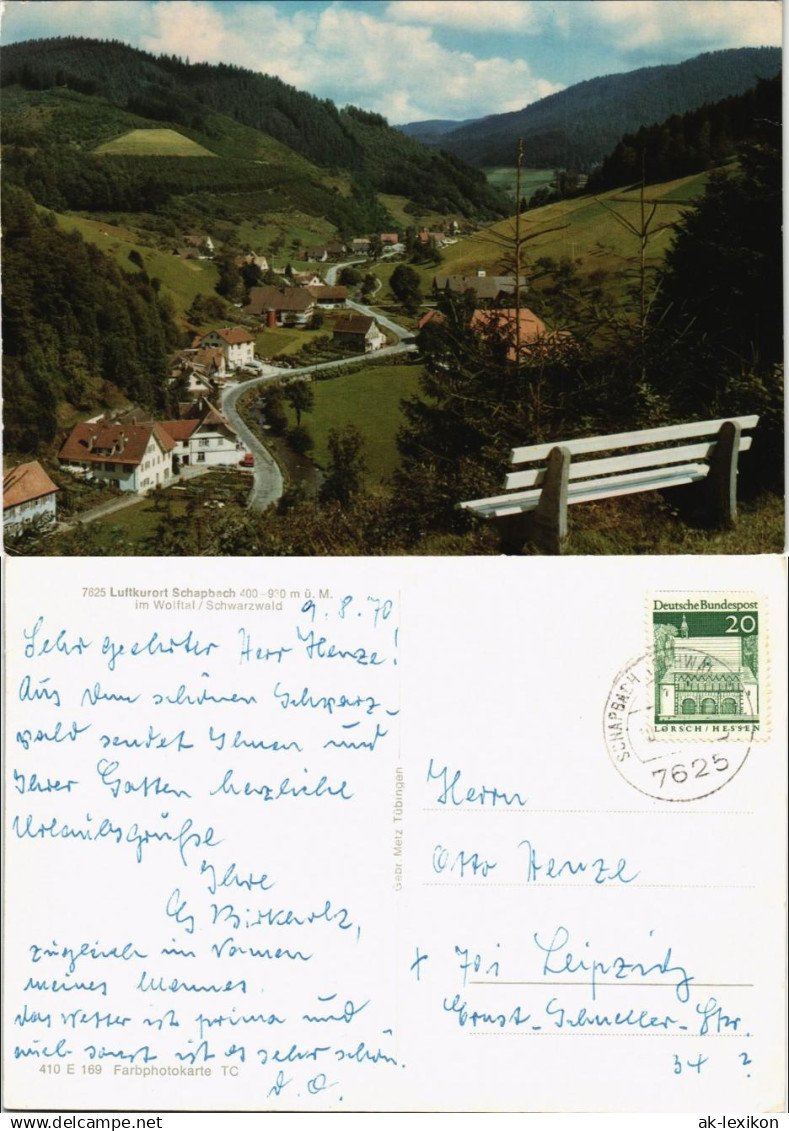 7625 Luftkurort Schapbach 400-930 m ü. M.
im Wolftal / Schwarzwald
9.8.70
Sehr geehrter Herr Henze!
Aus dem schönen Schwarz-
wald sendet Ihnen und
Ihrer Gattin herzliche
Urlaubsgrüße
Ihre
zugleich im Namen
meines Mannes.
das Wetter ist prima und
auch sonst ist es sehr schön.
D. O.
410 E 169 Farbphotokarte TC
Gebr. Metz Tübingen
Deutsche Bundespost
20
LORSCH / HESSEN
SCHAPBACH
7625
Herrn
Otto Henze
x 701 Leipzig
Ernst-Schneller-Str.
34 ?
www.delcampe.net
ak-lexikon